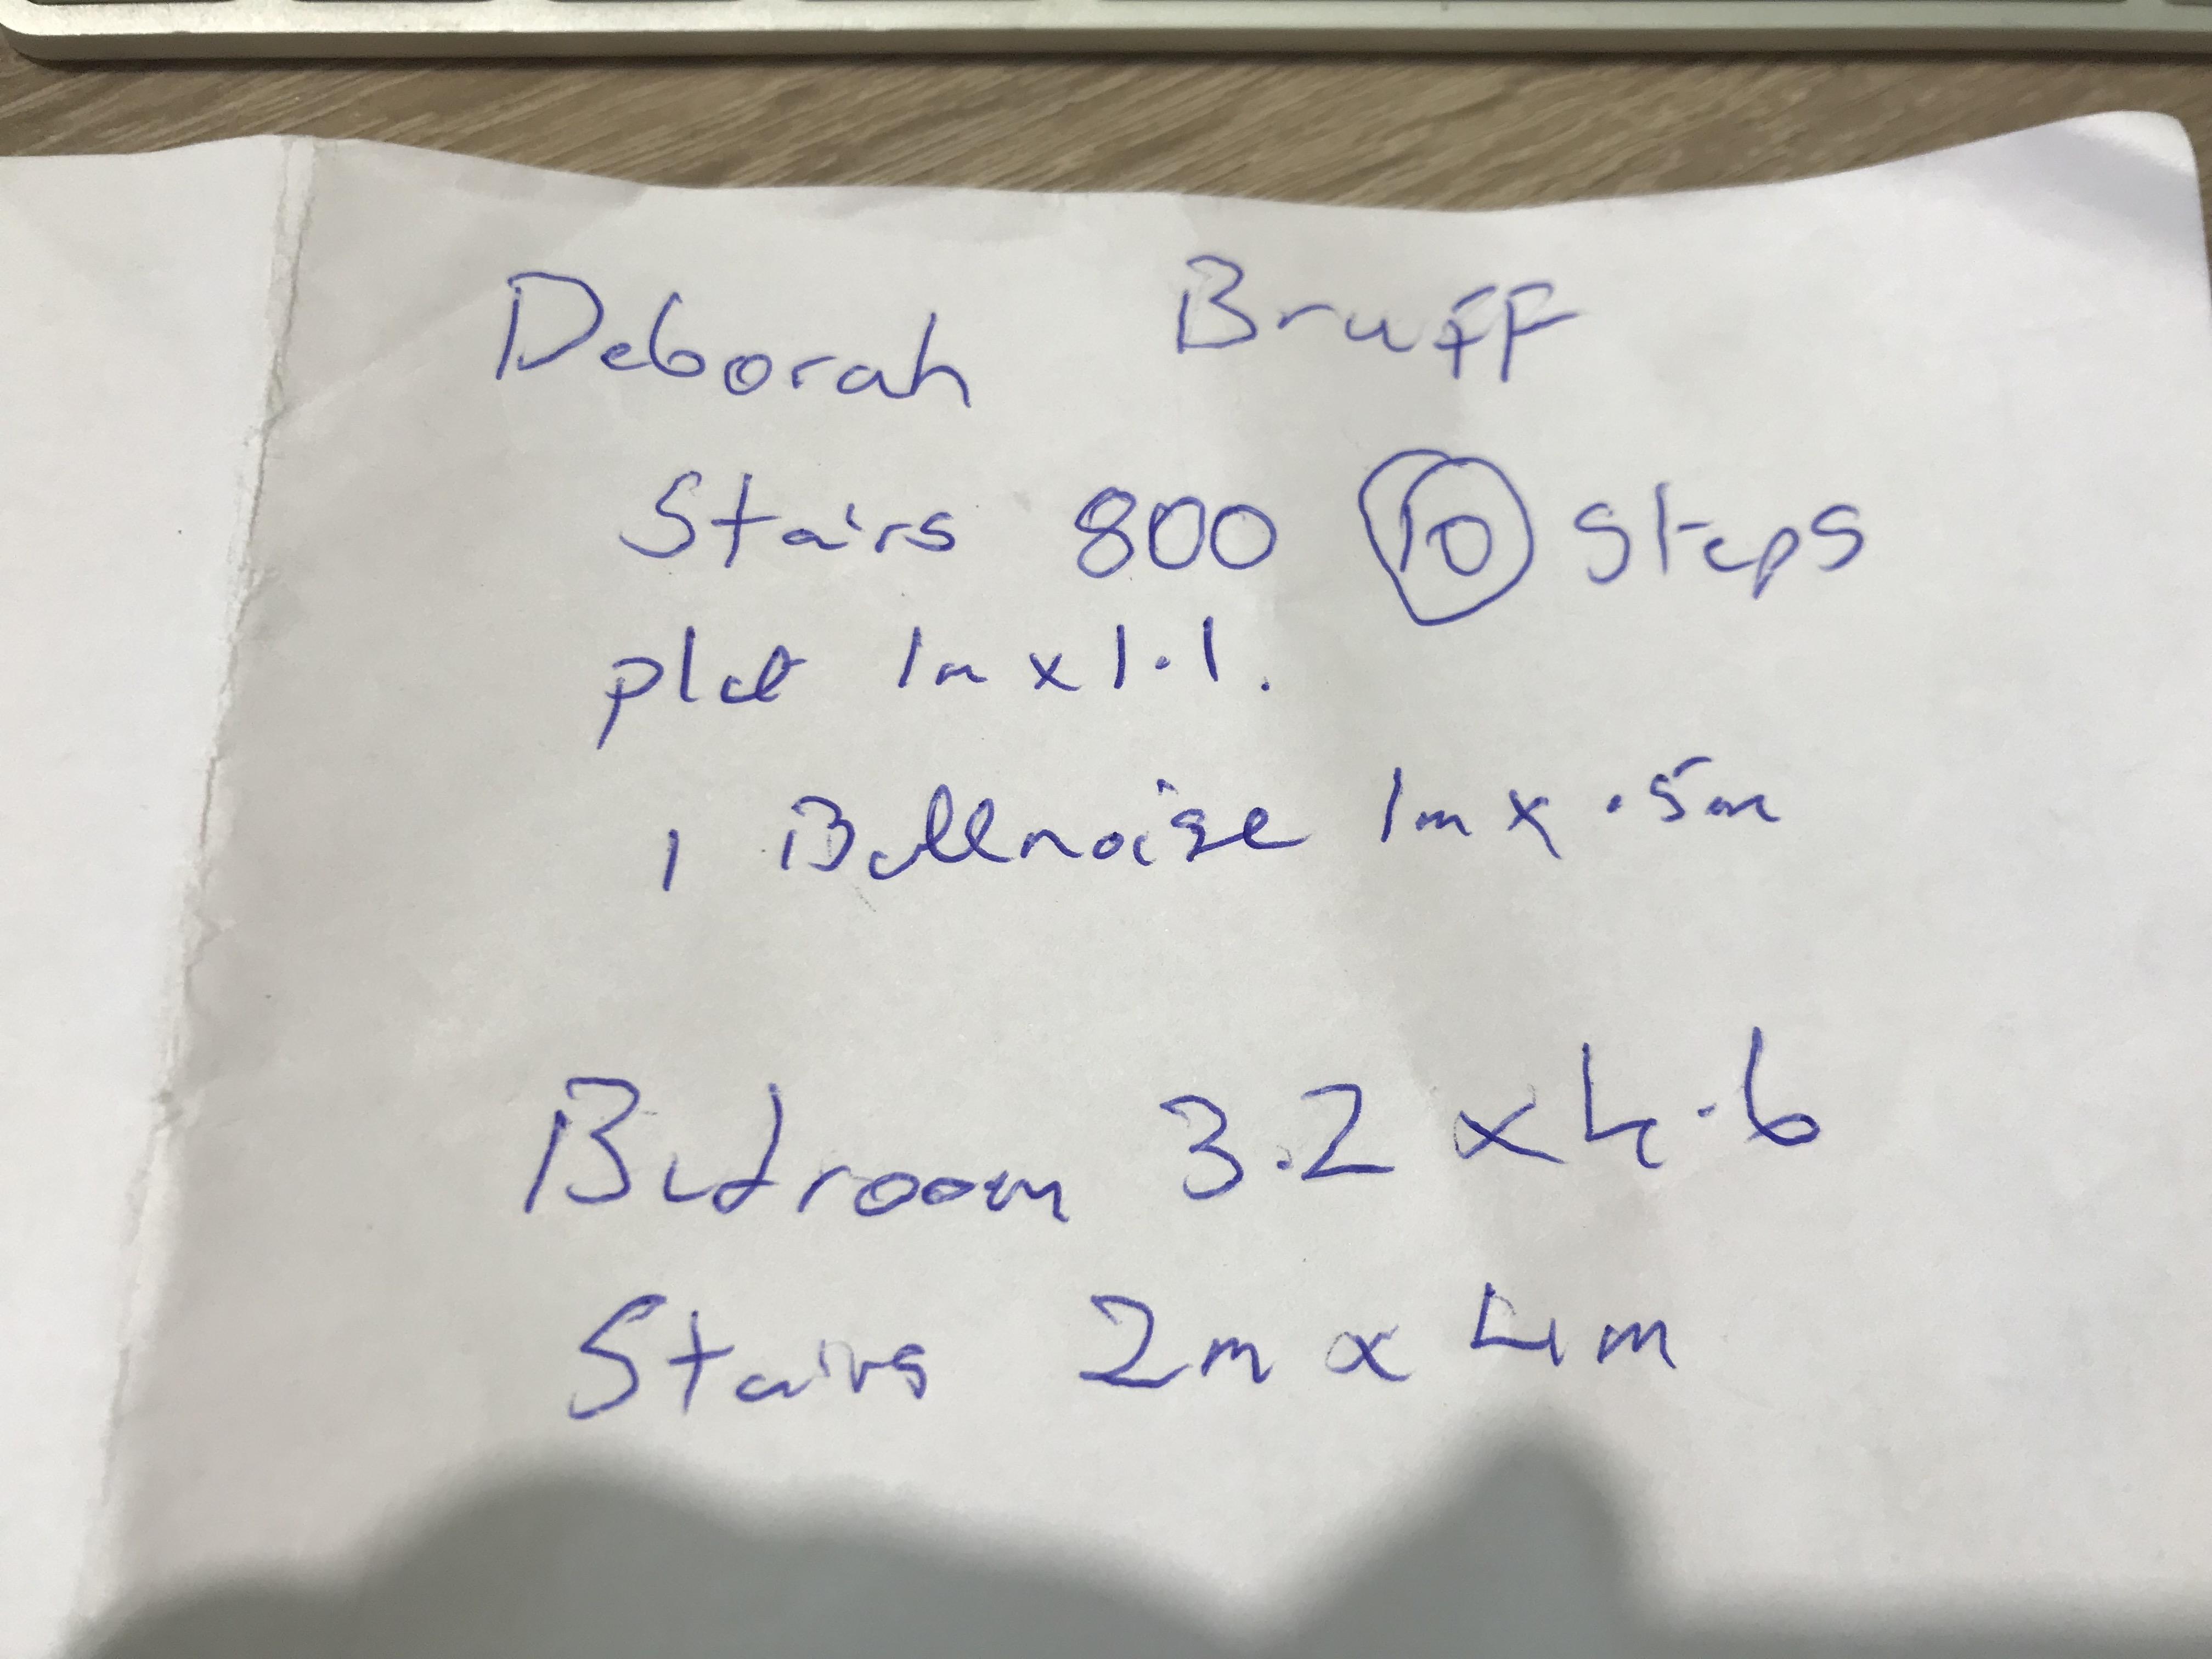 Deborah Bruff
Stairs 800 10 Steps
plat 1m x 1.1.
1 Bullnoise 1m x .5m
Bedroom 3.2 x 4.6
Stairs 2m x 4m